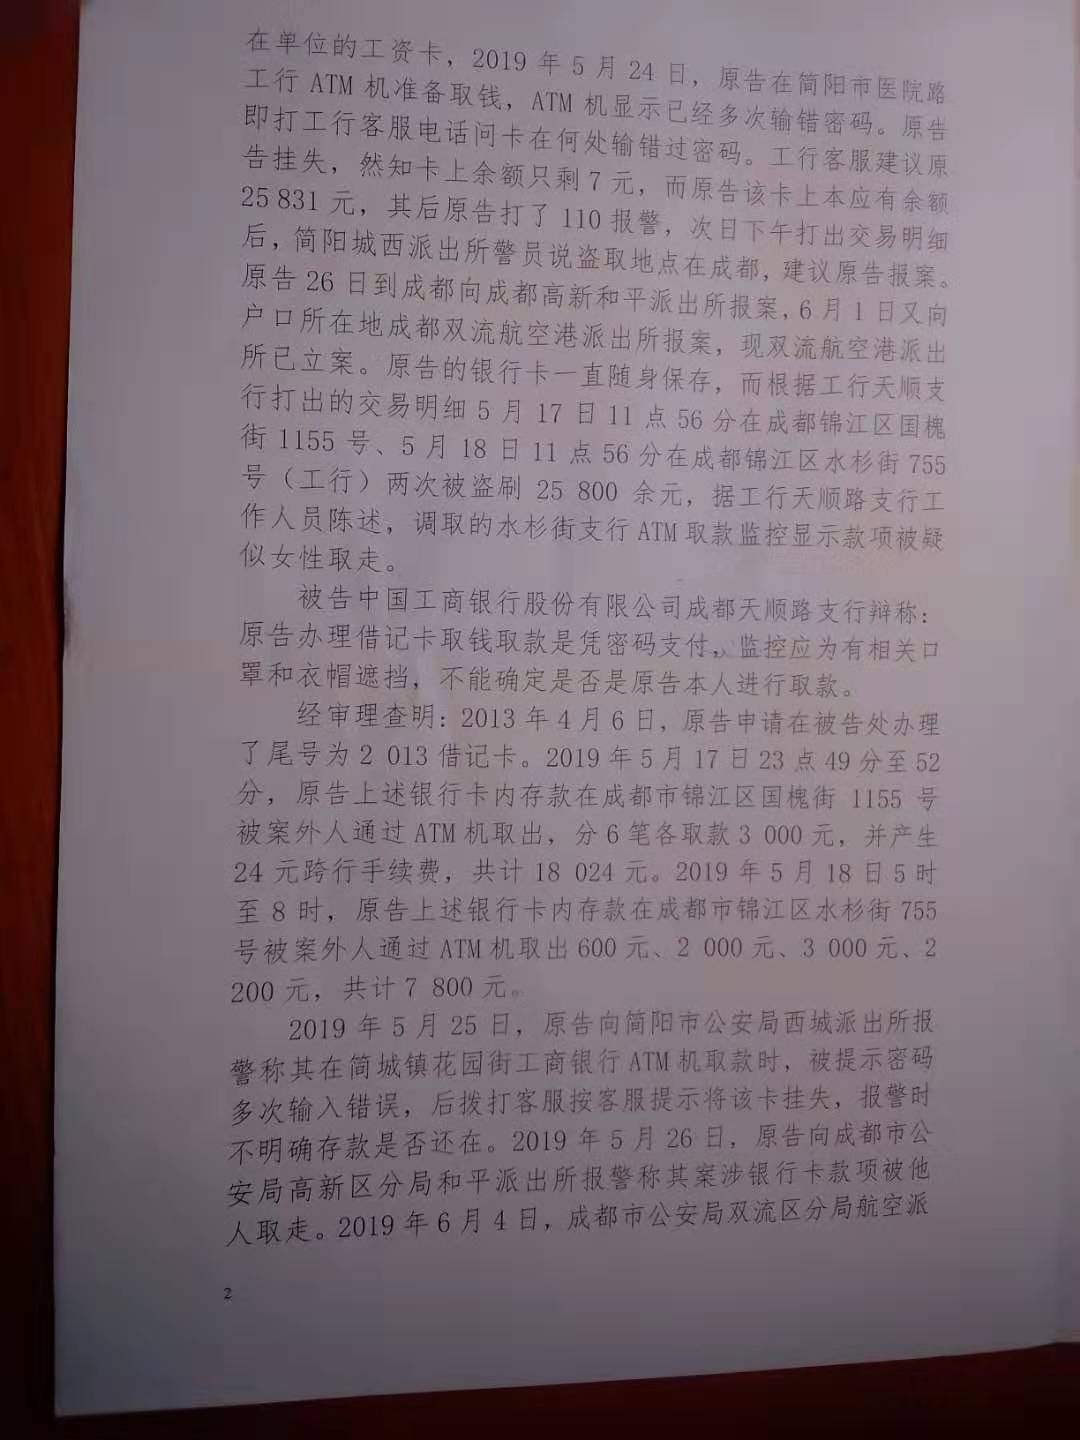 在单位的工资卡，2019 年 5 月 24 日，原告在简阳市医院路
工行 ATM 机准备取钱，ATM 机显示已经多次输错密码。原告
即打工行客服电话问卡在何处输错过密码。工行客服建议原
告挂失，然知卡上余额只剩 7 元，而原告该卡上本应有余额
25 831 元，其后原告打了 110 报警，次日下午打出交易明细
后，简阳城西派出所警员说盗取地点在成都，建议原告报案。
原告 26 日到成都向成都高新和平派出所报案，6 月 1 日又向
户口所在地成都双流航空港派出所报案，现双流航空港派出
所已立案。原告的银行卡一直随身保存，而根据工行天顺支
行打出的交易明细 5 月 17 日 11 点 56 分在成都锦江区国槐
街 1155 号、5 月 18 日 11 点 56 分在成都锦江区水杉街 755
号（工行）两次被盗刷 25 800 余元，据工行天顺路支行工
作人员陈述，调取的水杉街支行 ATM 取款监控显示款项被疑
似女性取走。
被告中国工商银行股份有限公司成都天顺路支行辩称：
原告办理借记卡取钱取款是凭密码支付，监控应为有相关口
罩和衣帽遮挡，不能确定是否是原告本人进行取款。
经审理查明：2013 年 4 月 6 日，原告申请在被告处办理
了尾号为 2 013 借记卡。2019 年 5 月 17 日 23 点 49 分至 52
分，原告上述银行卡内存款在成都市锦江区国槐街 1155 号
被案外人通过 ATM 机取出，分 6 笔各取款 3 000 元，并产生
24 元跨行手续费，共计 18 024 元。2019 年 5 月 18 日 5 时
至 8 时，原告上述银行卡内存款在成都市锦江区水杉街 755
号被案外人通过 ATM 机取出 600 元、2 000 元、3 000 元、2
200 元，共计 7 800 元。
2019 年 5 月 25 日，原告向简阳市公安局西城派出所报
警称其在简城镇花园街工商银行 ATM 机取款时，被提示密码
多次输入错误，后拨打客服按客服提示将该卡挂失，报警时
不明确存款是否还在。2019 年 5 月 26 日，原告向成都市公
安局高新区分局和平派出所报警称其案涉银行卡款项被他
人取走。2019 年 6 月 4 日，成都市公安局双流区分局航空派
2